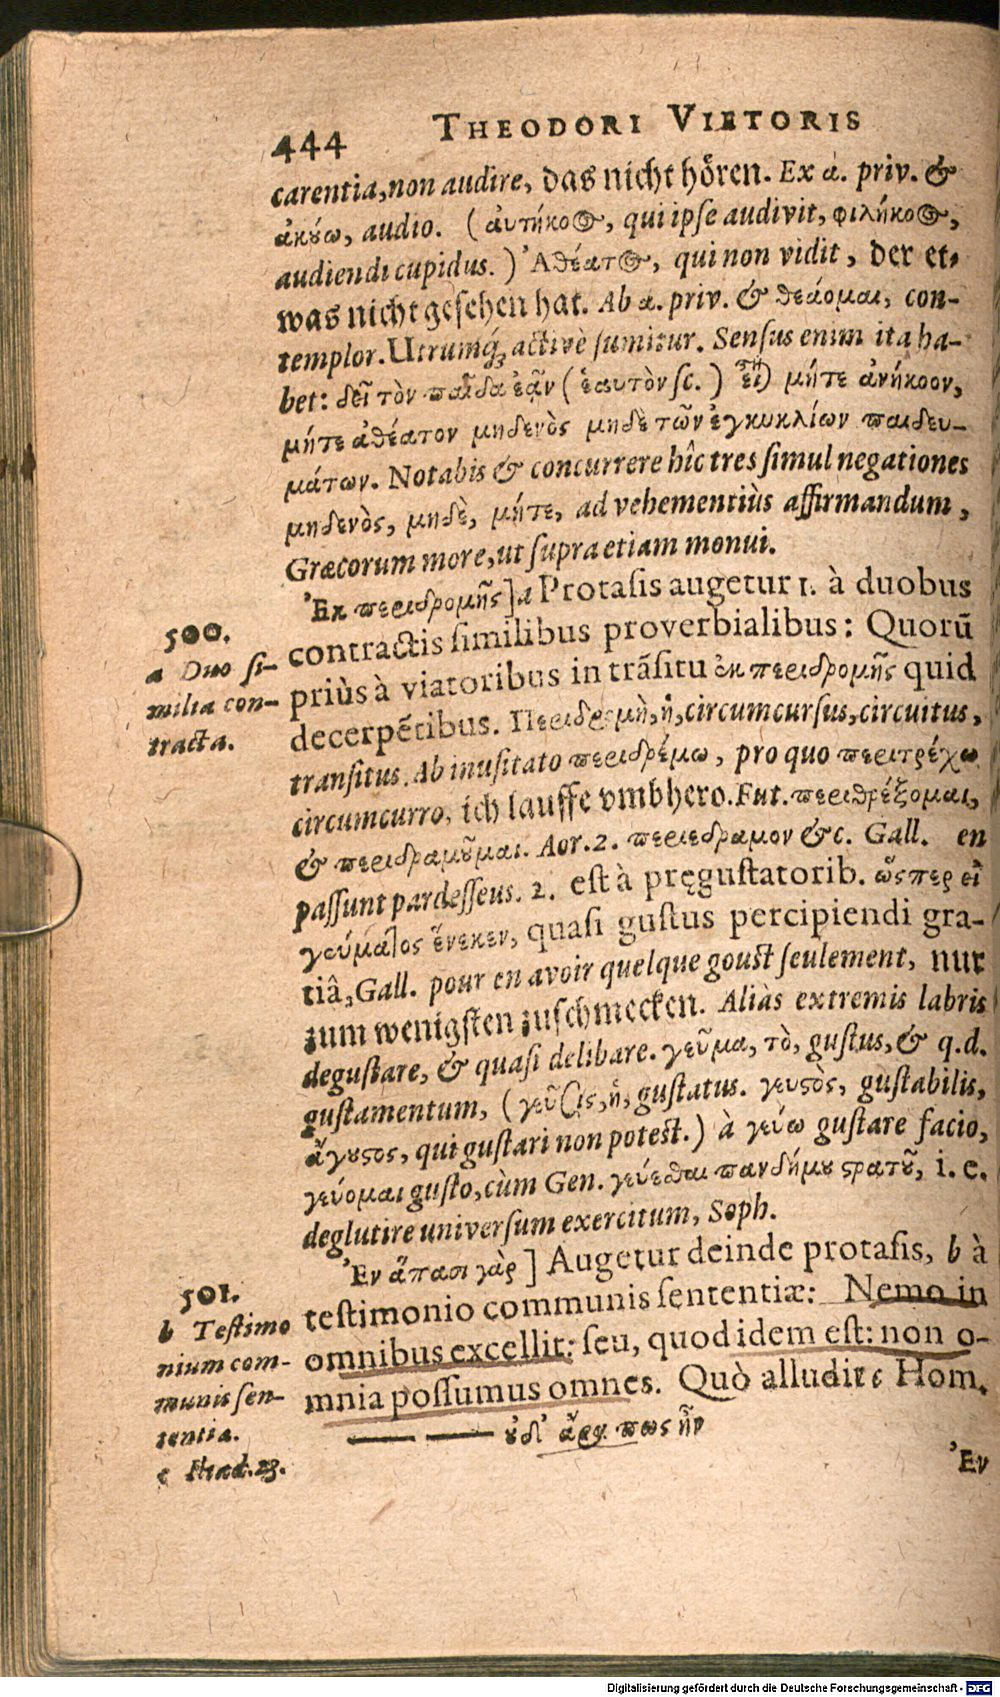 444 THEODORI VIETORIS
carentia, non audire, das nicht hören. Ex ἀ. priv. &
ἀκούω, audio. (αὐτήκοος, qui ipse audivit, φιλήκοος,
audiendi cupidus.) Ἀθέατος, qui non vidit, der et⸗
was nicht gesehen hat. Ab ἀ. priv. & θεάομαι, con-
templor. Utrumq́; activè sumitur. Sensus enim ita ha-
bet: δεῖ τὸν παῖδα ἐᾷν (ἑαυτὸν sc.) εἶναι μήτε ἀνήκοον,
μήτε ἀθέατον μηδενὸς μηδὲ τῶν ἐγκυκλίων παιδευ-
μάτων. Notabis & concurrere hîc tres simul negationes
μηδενὸς, μηδὲ, μήτε, ad vehementiùs affirmandum,
Græcorum more, ut supra etiam monui.
500. Ἐκ περιδρομῆς] a Protasis augetur 1. à duobus
a Duo si- contractis similibus proverbialibus: Quorũ
milia con- priùs à viatoribus in trãsitu ἐκ περιδρομῆς quid
tracta. decerpẽtibus. Περιδρομὴ, ἡ, circumcursus, circuitus,
transitus. Ab inusitato περιδρέμω, pro quo περιτρέχω
circumcurro, ich lauffe vmbhero. Fut. περιθρέξομαι,
& περιδραμοῦμαι. Aor. 2. περιέδραμον &c. Gall. en
passunt pardesseus. 2. est à pręgustatorib. ὥσπερ εἰ
γεύματος ἕνεκεν, quasi gustus percipiendi gra-
tiâ, Gall. pour en avoir quelque goust seulement, nur
zum wenigsten zuschmecken. Aliàs extremis labris
degustare, & quasi delibare. γεῦμα, τὸ, gustus, & q.d.
gustamentum, (γεῦσις, ἡ, gustatus. γευστὸς, gustabilis,
ἄγευστος, qui gustari non potest.) à γεύω gustare facio,
γεύομαι gusto, cùm Gen. γεύεσθαι πανδήμου στρατοῦ, i. e.
deglutire universum exercitum, Soph.
501. Ἐν ἅπασι γὰρ] Augetur deinde protasis, b à
b Testimo testimonio communis sententiæ: Nemo in
nium com- omnibus excellit: seu, quod idem est: non o-
munis sen- mnia possumus omnes. Quò alludit c Hom.
tentia. — — οὐδ᾽ ἄρα πως ἦν
c Iliad. 23. Ἐν
Digitalisierung gefördert durch die Deutsche Forschungsgemeinschaft - DFG